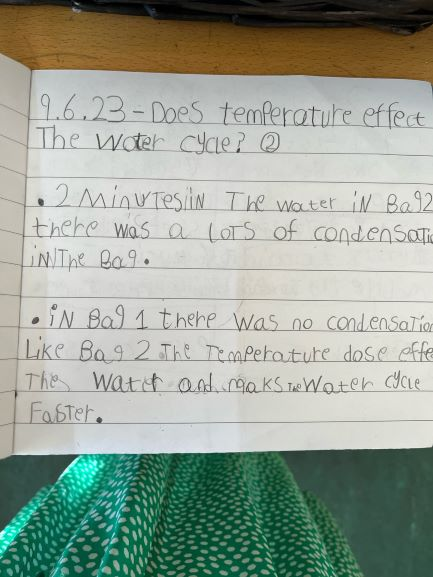 9.6.23 - Does temperature effect
The water cycle? ②
• 2 Minutes iN The water iN Bag2
there was a LoTS of condensatio
iN The Bag.
• iN Bag 1 there was no condensation
Like Bag 2. The Temperature dose effe
The Water and maks The Water cycle
Faster.